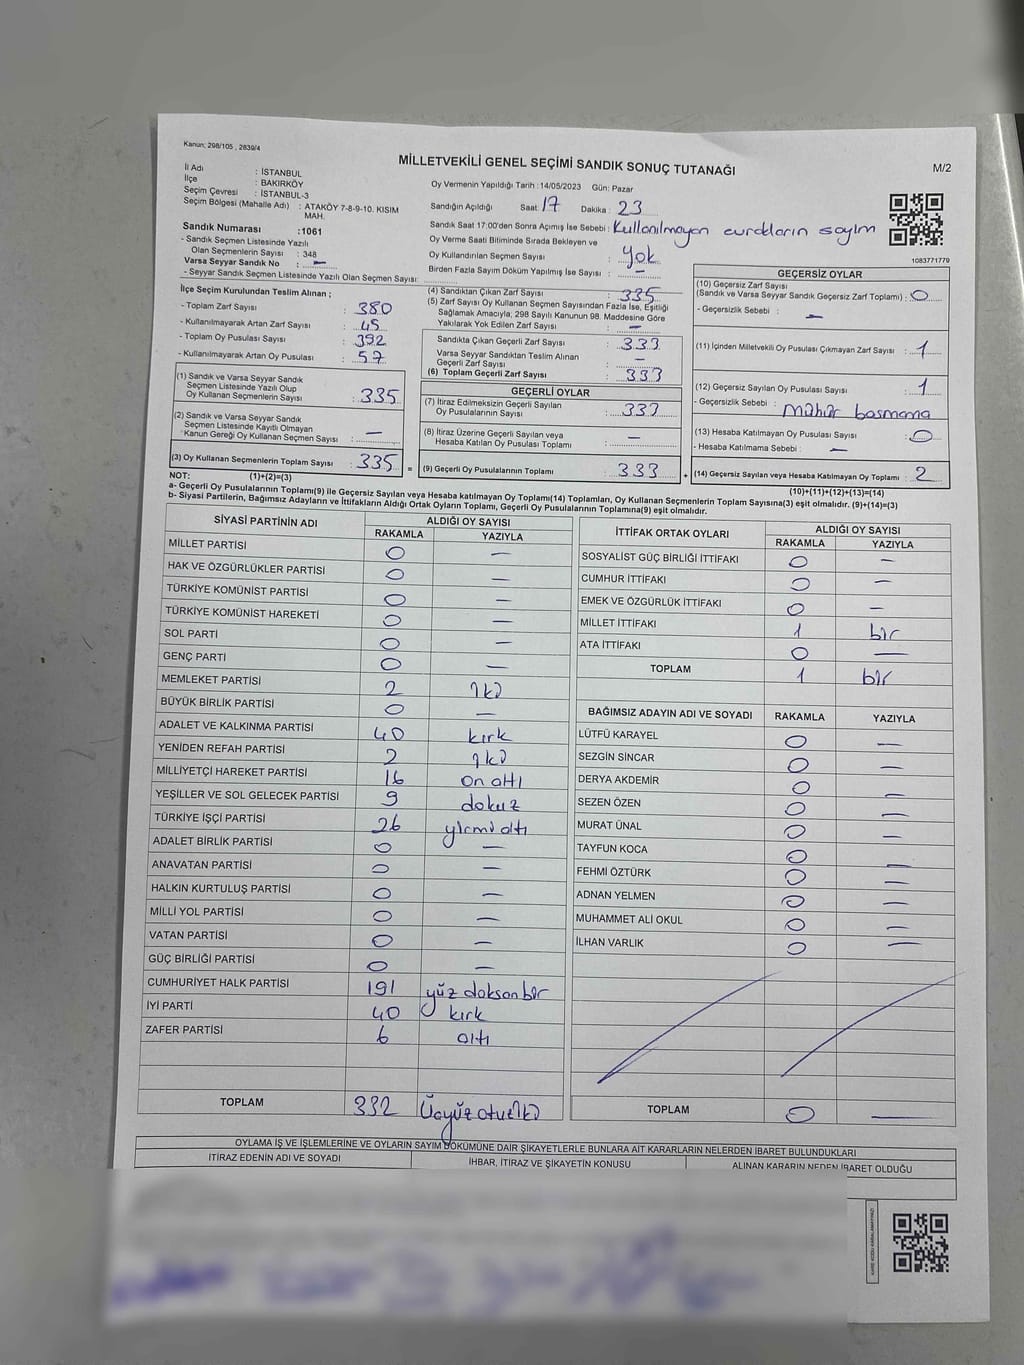 Kanun; 298/105 , 2839/4
MİLLETVEKİLİ GENEL SEÇİMİ SANDIK SONUÇ TUTANAĞI
M/2
İl Adı : İSTANBUL
İlçe : BAKIRKÖY
Seçim Çevresi : İSTANBUL-3
Seçim Bölgesi (Mahalle Adı) : ATAKÖY 7-8-9-10. KISIM MAH.
Sandık Numarası :1061
- Sandık Seçmen Listesinde Yazılı
Olan Seçmenlerin Sayısı : 348
Varsa Seyyar Sandık No : —
- Seyyar Sandık Seçmen Listesinde Yazılı Olan Seçmen Sayısı:
Oy Vermenin Yapıldığı Tarih :14/05/2023 Gün: Pazar
Sandığın Açıldığı Saat: 17 Dakika : 23
Sandık Saat 17:00'den Sonra Açımış İse Sebebi : Kullanılmayan evrakların sayım
Oy Verme Saati Bitiminde Sırada Bekleyen ve
Oy Kullandırılan Seçmen Sayısı : Yok
Birden Fazla Sayım Döküm Yapılmış İse Sayısı : —
1083771779
İlçe Seçim Kurulundan Teslim Alınan ;
- Toplam Zarf Sayısı : 380
- Kullanılmayarak Artan Zarf Sayısı : 45
- Toplam Oy Pusulası Sayısı : 392
- Kullanılmayarak Artan Oy Pusulası : 57
(1) Sandık ve Varsa Seyyar Sandık
Seçmen Listesinde Yazılı Olup
Oy Kullanan Seçmenlerin Sayısı : 335
(2) Sandık ve Varsa Seyyar Sandık
Seçmen Listesinde Kayıtlı Olmayan
Kanun Gereği Oy Kullanan Seçmen Sayısı : —
(3) Oy Kullanan Seçmenlerin Toplam Sayısı : 335
(4) Sandıktan Çıkan Zarf Sayısı : 335
(5) Zarf Sayısı Oy Kullanan Seçmen Sayısından Fazla İse, Eşitliği
Sağlamak Amacıyla; 298 Sayılı Kanunun 98. Maddesine Göre
Yakılarak Yok Edilen Zarf Sayısı : —
Sandıkta Çıkan Geçerli Zarf Sayısı : 333
Varsa Seyyar Sandıktan Teslim Alınan
Geçerli Zarf Sayısı : —
(6) Toplam Geçerli Zarf Sayısı : 333
GEÇERLİ OYLAR
(7) İtiraz Edilmeksizin Geçerli Sayılan
Oy Pusulalarının Sayısı : 333
(8) İtiraz Üzerine Geçerli Sayılan veya
Hesaba Katılan Oy Pusulası Toplamı : —
= (9) Geçerli Oy Pusulalarının Toplamı : 333 +
GEÇERSİZ OYLAR
(10) Geçersiz Zarf Sayısı
(Sandık ve Varsa Seyyar Sandık Geçersiz Zarf Toplamı) : 0
- Geçersizlik Sebebi : —
(11) İçinden Milletvekili Oy Pusulası Çıkmayan Zarf Sayısı : 1
(12) Geçersiz Sayılan Oy Pusulası Sayısı : 1
- Geçersizlik Sebebi : Mühür basmama
(13) Hesaba Katılmayan Oy Pusulası Sayısı : 0
- Hesaba Katılmama Sebebi : —
(14) Geçersiz Sayılan veya Hesaba Katılmayan Oy Toplamı : 2
NOT: (1)+(2)=(3)
(10)+(11)+(12)+(13)=(14)
a- Geçerli Oy Pusulalarının Toplamı(9) ile Geçersiz Sayılan veya Hesaba katılmayan Oy Toplamı(14) Toplamları, Oy Kullanan Seçmenlerin Toplam Sayısına(3) eşit olmalıdır. (9)+(14)=(3)
b- Siyasi Partilerin, Bağımsız Adayların ve İttifakların Aldığı Ortak Oyların Toplamı, Geçerli Oy Pusulalarının Toplamına(9) eşit olmalıdır.
SİYASİ PARTİNİN ADI ALDIĞI OY SAYISI
RAKAMLA YAZIYLA
MİLLET PARTİSİ 0 —
HAK VE ÖZGÜRLÜKLER PARTİSİ 0 —
TÜRKİYE KOMÜNİST PARTİSİ 0 —
TÜRKİYE KOMÜNİST HAREKETİ 0 —
SOL PARTİ 0 —
GENÇ PARTİ 0 —
MEMLEKET PARTİSİ 2 İki
BÜYÜK BİRLİK PARTİSİ 0 —
ADALET VE KALKINMA PARTİSİ 40 kırk
YENİDEN REFAH PARTİSİ 2 İki
MİLLİYETÇİ HAREKET PARTİSİ 16 on altı
YEŞİLLER VE SOL GELECEK PARTİSİ 9 dokuz
TÜRKİYE İŞÇİ PARTİSİ 26 yirmi altı
ADALET BİRLİK PARTİSİ 0 —
ANAVATAN PARTİSİ 0 —
HALKIN KURTULUŞ PARTİSİ 0 —
MİLLİ YOL PARTİSİ 0 —
VATAN PARTİSİ 0 —
GÜÇ BİRLİĞİ PARTİSİ 0 —
CUMHURİYET HALK PARTİSİ 191 yüz doksan bir
İYİ PARTİ 40 kırk
ZAFER PARTİSİ 6 altı
TOPLAM 332 Üçyüz otuz iki
İTTİFAK ORTAK OYLARI ALDIĞI OY SAYISI
RAKAMLA YAZIYLA
SOSYALİST GÜÇ BİRLİĞİ İTTİFAKI 0 —
CUMHUR İTTİFAKI 0 —
EMEK VE ÖZGÜRLÜK İTTİFAKI 0 —
MİLLET İTTİFAKI 1 bir
ATA İTTİFAKI 0 —
TOPLAM 1 bir
BAĞIMSIZ ADAYIN ADI VE SOYADI RAKAMLA YAZIYLA
LÜTFÜ KARAYEL 0 —
SEZGİN SİNCAR 0 —
DERYA AKDEMİR 0 —
SEZEN ÖZEN 0 —
MURAT ÜNAL 0 —
TAYFUN KOCA 0 —
FEHMİ ÖZTÜRK 0 —
ADNAN YELMEN 0 —
MUHAMMET ALİ OKUL 0 —
İLHAN VARLIK 0 —
TOPLAM 0 —
OYLAMA İŞ VE İŞLEMLERİNE VE OYLARIN SAYIM DÖKÜMÜNE DAİR ŞİKAYETLERLE BUNLARA AİT KARARLARIN NELERDEN İBARET BULUNDUKLARI
İTİRAZ EDENİN ADI VE SOYADI İHBAR, İTİRAZ VE ŞİKAYETİN KONUSU ALINAN KARARIN NEDEN İBARET OLDUĞU
KARE KODU KARALAMAYINIZ!